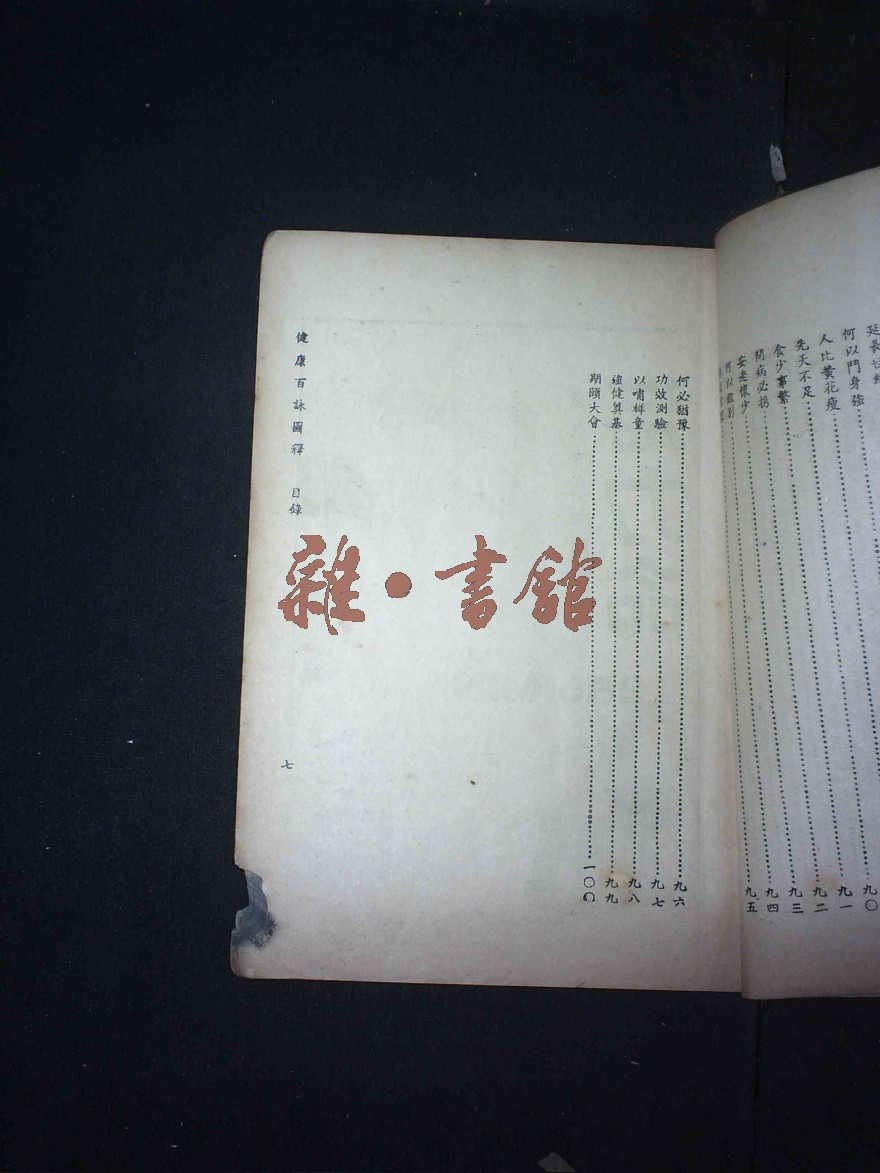 何以鬥身強
九〇
人比黃花瘦
九一
先天不足
九二
食少事繁
九三
問病必携
九四
安老懷少
九五
何必猶豫
九六
功效測驗
九七
以嘯祥童
九八
強健奠基
九九
期頤大會
一〇〇
健康百詠圖釋 目錄
七
雜·書館